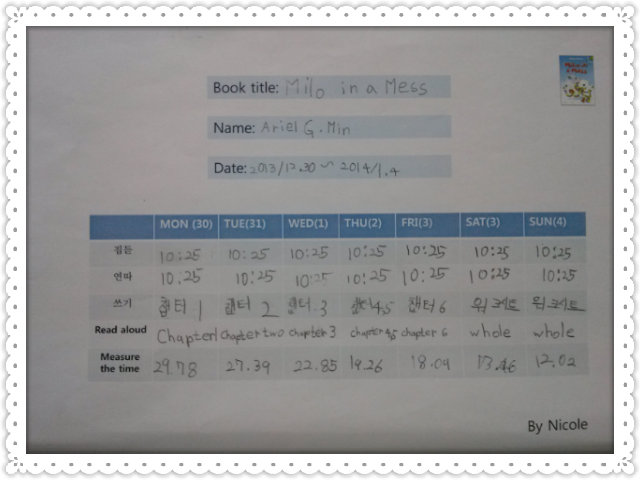 Book title: Milo in a Mess
Name: Ariel G. Min
Date: 2013/12.30 ~ 2014/1.4
MON (30) TUE(31) WED(1) THU(2) FRI(3) SAT(3) SUN(4)
집듣 10:25 10:25 10:25 10:25 10:25 10:25 10:25
연따 10:25 10:25 10:25 10:25 10:25 10:25 10:25
쓰기 챕터 1 챕터 2 챕터 3 챕터 4,5 챕터 6
Read aloud Chapter1 Chapter two chapter 3 chapter 4,5 chapter 6 whole whole
Measure the time 29.78 27.39 22.85 19.26 18.09 13.46 12.02
By Nicole